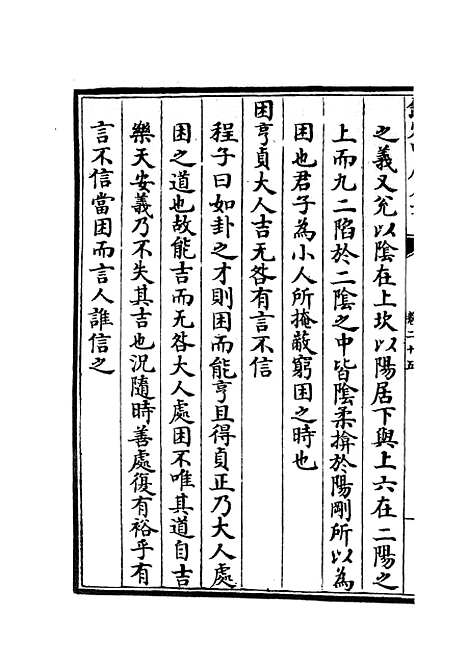 之義又兊以陰在上坎以陽居下與上六在二陽之
上而九二陷於二陰之中皆陰柔揜於陽剛所以為
困也君子為小人所掩蔽窮困之時也
困亨貞大人吉无咎有言不信
程子曰如卦之才則困而能亨且得貞正乃大人處
困之道也故能吉而无咎大人處困不唯其道自吉
樂天安義乃不失其吉也況隨時善處復有裕乎有
言不信當困而言人誰信之
卷二十五